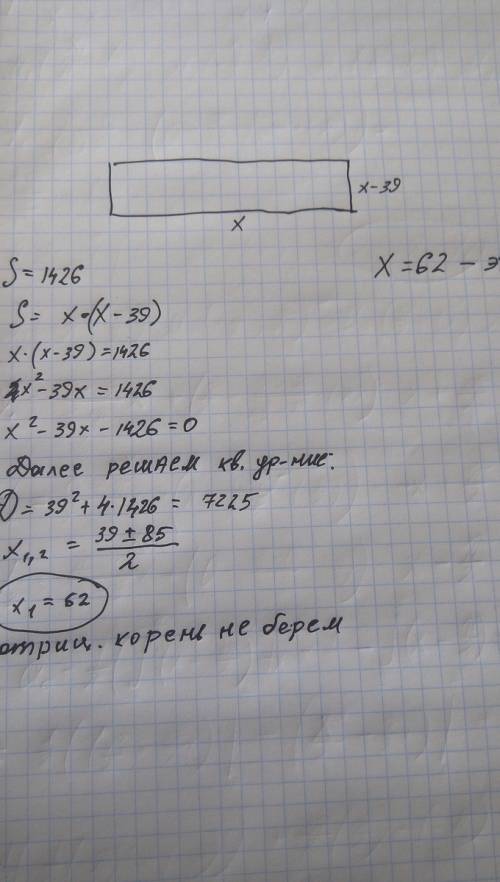 x-39
x
S = 1426
x = 62 - э
S = x·(x-39)
x·(x-39) = 1426
x² - 39x = 1426
x² - 39x - 1426 = 0
Далее решаем кв. ур-ние:
D = 39² + 4·1426 = 7225
x₁,₂ = (39 ± 85)/2
x₁ = 62
отриц. корень не берем